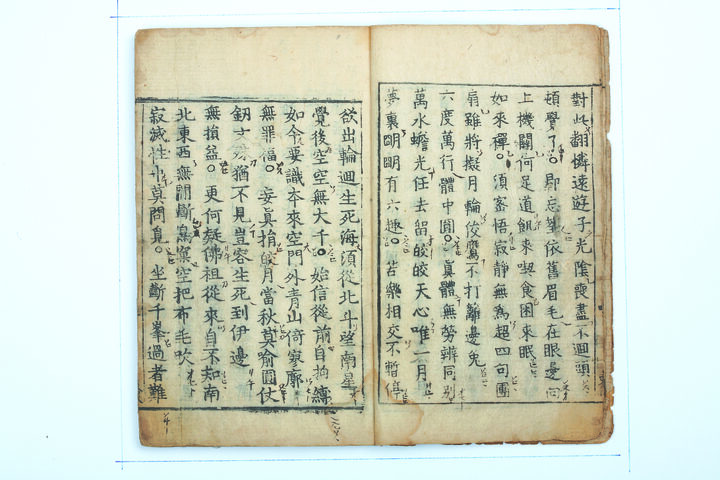 對此翻憐遠遊子光陰喪盡不迴頭
頓覺了○即忘筌依舊眉毛在眼邊向
上機關何足道飢來喫食困來眠
如來禪○須密悟寂靜無爲超四句團
扇雖將擬月輪皎鷹不打籬邊兔
六度萬行體中圓○眞體無勞辨同別
萬水蟾光任去留皎皎天心唯一月
夢裏明明有六趣○苦樂相交不暫停
欲出輪迴生死海須從北斗望南星
覺後空空無大千○始信從前自拘縛
如今要識本來空門外靑山倚寥廓
無罪福○妄眞捐皎月當秋莫喩圓仗
釰文殊猶不見豈容生死到伊邊
無損益○更何疑佛祖從來自不知南
北東西無間斷鳥窠空把布毛吹
寂滅性中莫問覓○坐斷千峯過者難